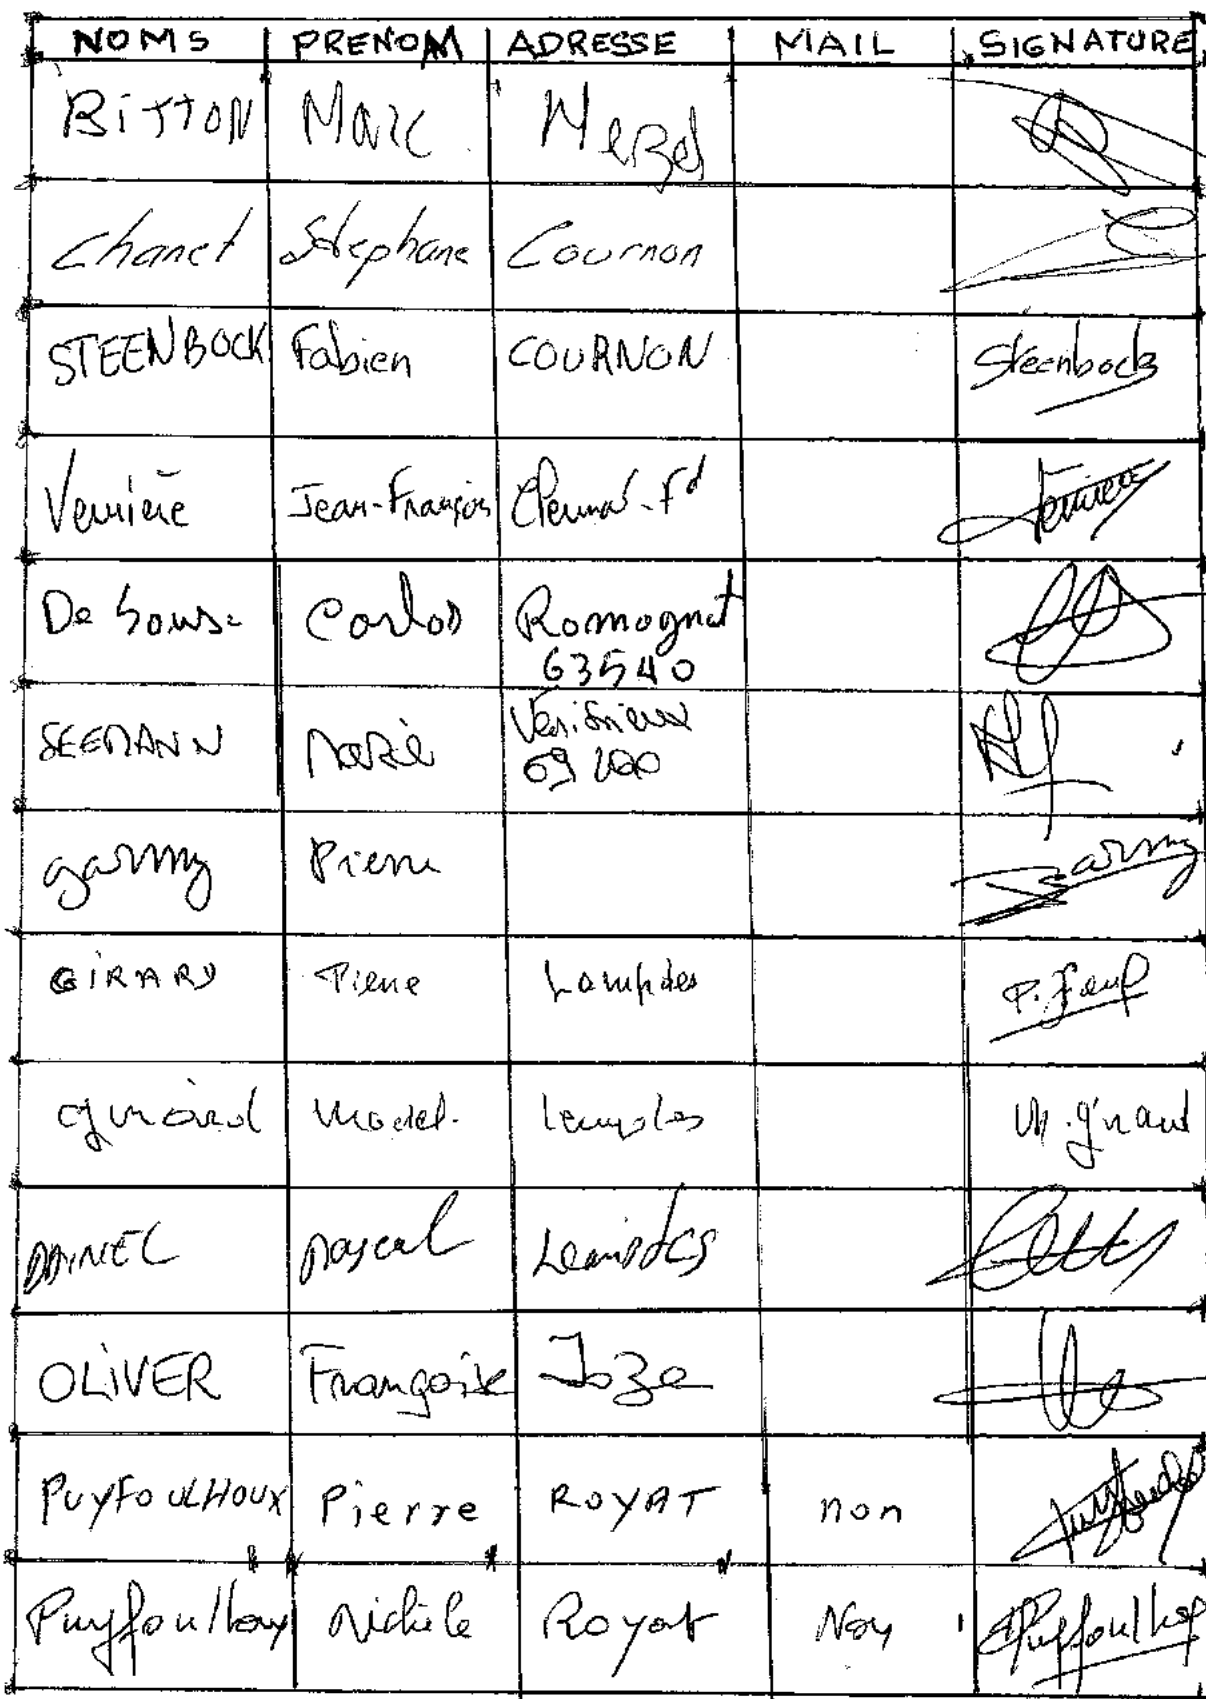 NOMS PRENOM ADRESSE MAIL SIGNATURE
BITTON Marc Mezel
Chanet Stephane Cournon
STEENBOCK Fabien COURNON Steenbock
Verrière Jean-François Clermont-Fd
De Sousa Carlos Romagnat
63540
SEEMANN Marie Vénissieux
69200
garmy Pierre garmy
GIRARD Pierre Lempdes
girard Lempdes M. girard
Pascal Lempdes
OLIVER Françoise Joze
PUYFOULHOUX Pierre ROYAT non
Puyfoulhoux Michèle Royat Non Puyfoulhoux